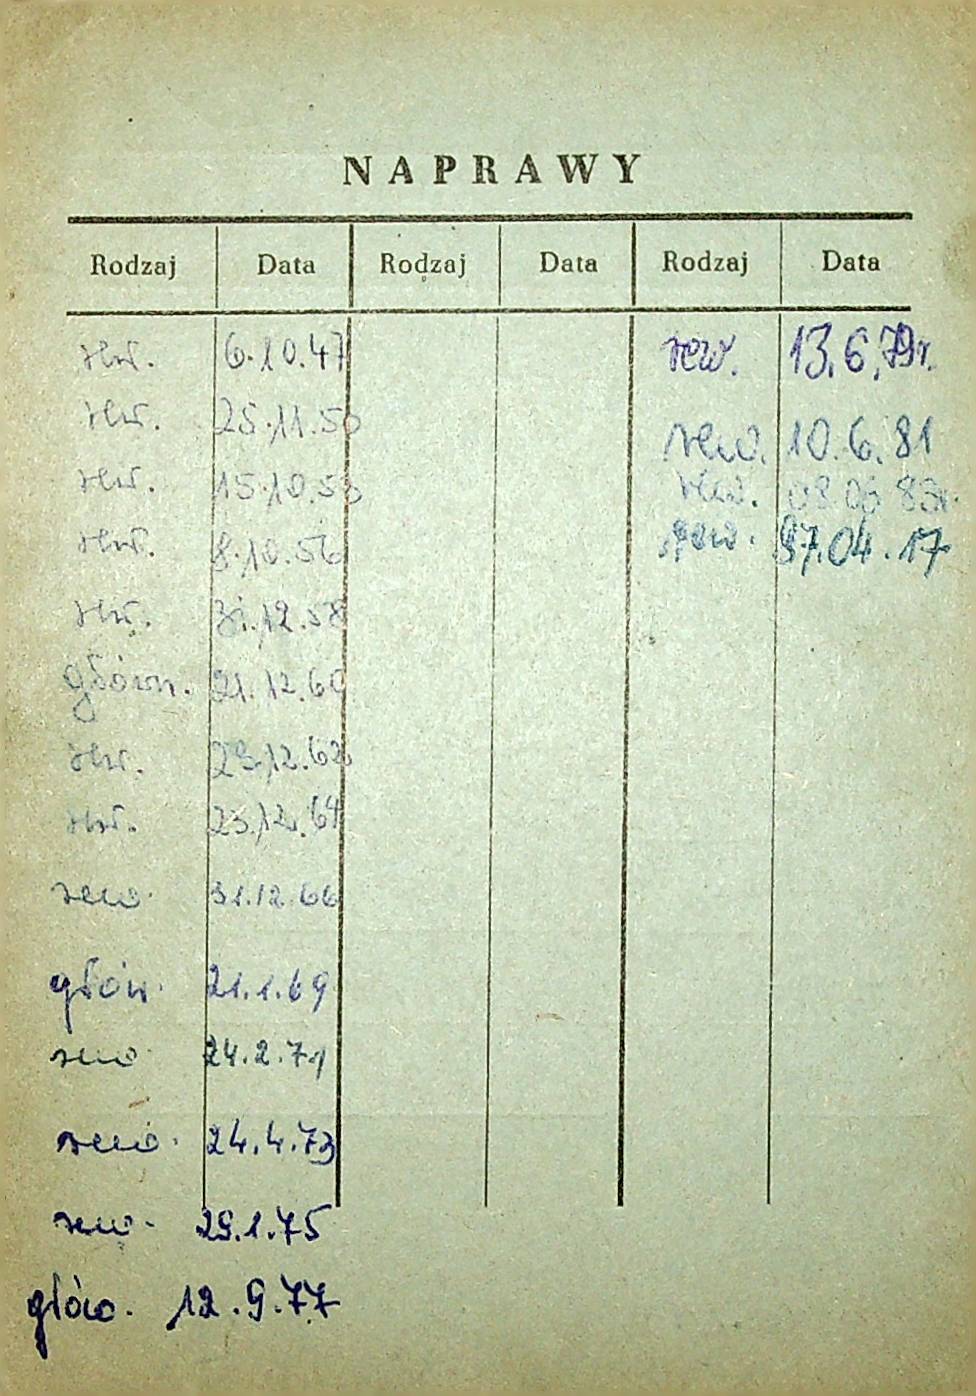 NAPRAWY
Rodzaj Data Rodzaj Data Rodzaj Data
rew. 6.10.47 rew. 13.6.79r.
rew. 25.11.50 rew. 10.6.81
rew. 15.10.53 rew.
rew. 8.10.56 rew. 87.04.17
rew. 31.12.58
główn. 21.12.60
rew. 29.12.62
rew. 23.12.64
rew. 31.12.66
głów. 21.1.69
rew 24.2.71
rew. 24.4.73
rew. 29.1.75
głów. 12.9.77